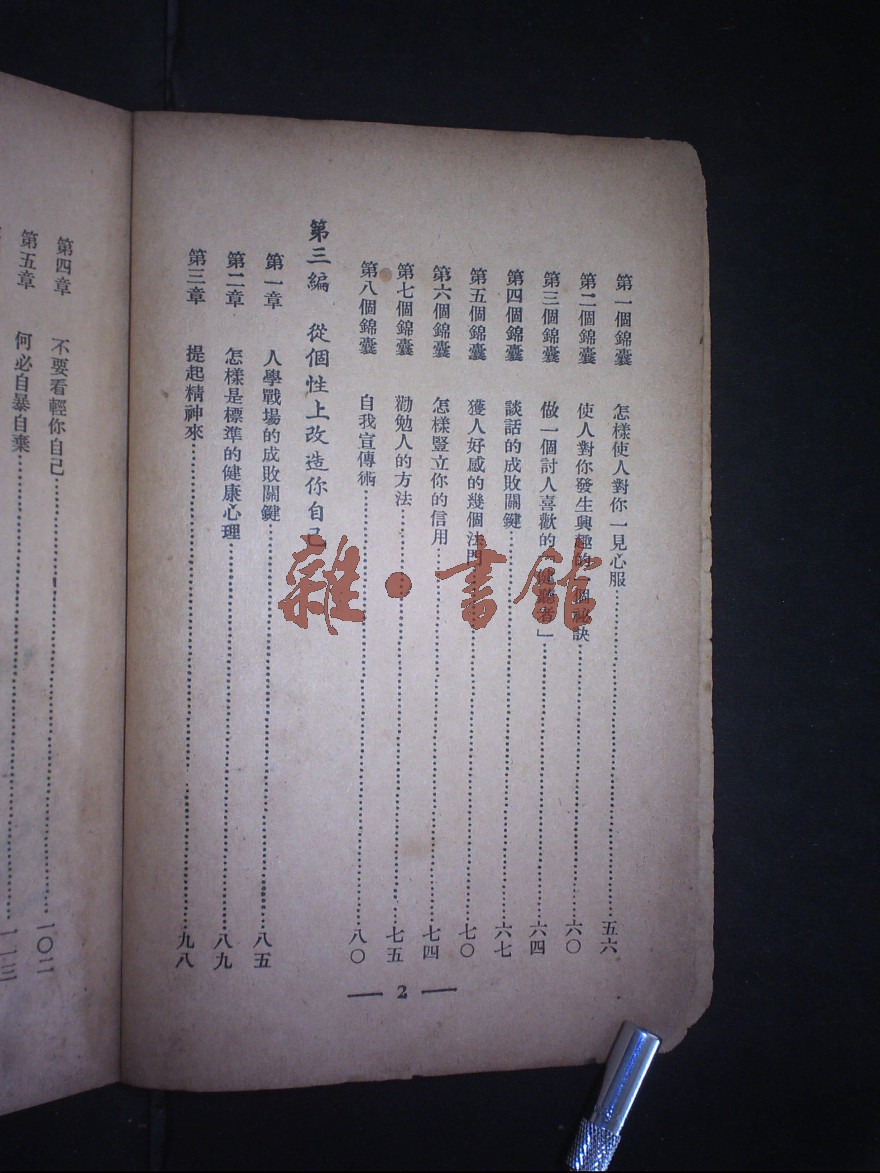 第一個錦囊 怎樣使人對你一見心服……五六
第二個錦囊 使人對你發生興趣的一個祕訣……六〇
第三個錦囊 做一個討人喜歡的「 聽者」……六四
第四個錦囊 談話的成敗關鍵……六七
第五個錦囊 獲人好感的幾個法門……七〇
第六個錦囊 怎樣豎立你的信用……七四
第七個錦囊 勸勉人的方法……七五
第八個錦囊 自我宣傳術……八〇
第三編 從個性上改造你自己
第一章 人學戰場的成敗關鍵……八五
第二章 怎樣是標準的健康心理……八九
第三章 提起精神來……九八
2
第四章 不要看輕你自己……一〇二
第五章 何必自暴自棄……一一三
雜·書館